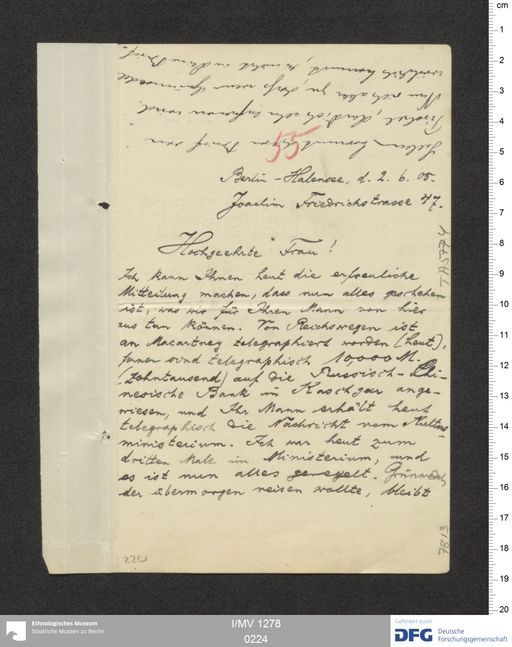 55
Berlin - Halensee, d. 2. 6. 05.
Joachim Friedrichstrasse 47.
Hochgeehrte Frau!
Ich kann Ihnen heut die erfreuliche
Mitteilung machen, dass nun alles geschehen
ist, was wir für Ihren Mann von hier
aus tun können. Von Reichswegen ist
an Macartney telegraphiert worden (heut),
ferner sind telegraphisch 10000 M.
(Zehntausend) auf die Russisch-Chi-
nesische Bank in Kaschgar ange-
wiesen, und Ihr Mann erhält heut
telegraphisch die Nachricht vom Kultus-
ministerium. Ich war heut zum
dritten Male im Ministerium, und
es ist nun alles geregelt. Grünwedel,
der übermorgen reisen wollte, bleibt
220
TA5774
7813
cm
1
2
3
4
5
6
7
8
9
10
11
12
13
14
15
16
17
18
19
20
Ethnologisches Museum
Staatliche Museen zu Berlin
I/MV 1278
0224
Gefördert durch
DFG Deutsche
Forschungsgemeinschaft